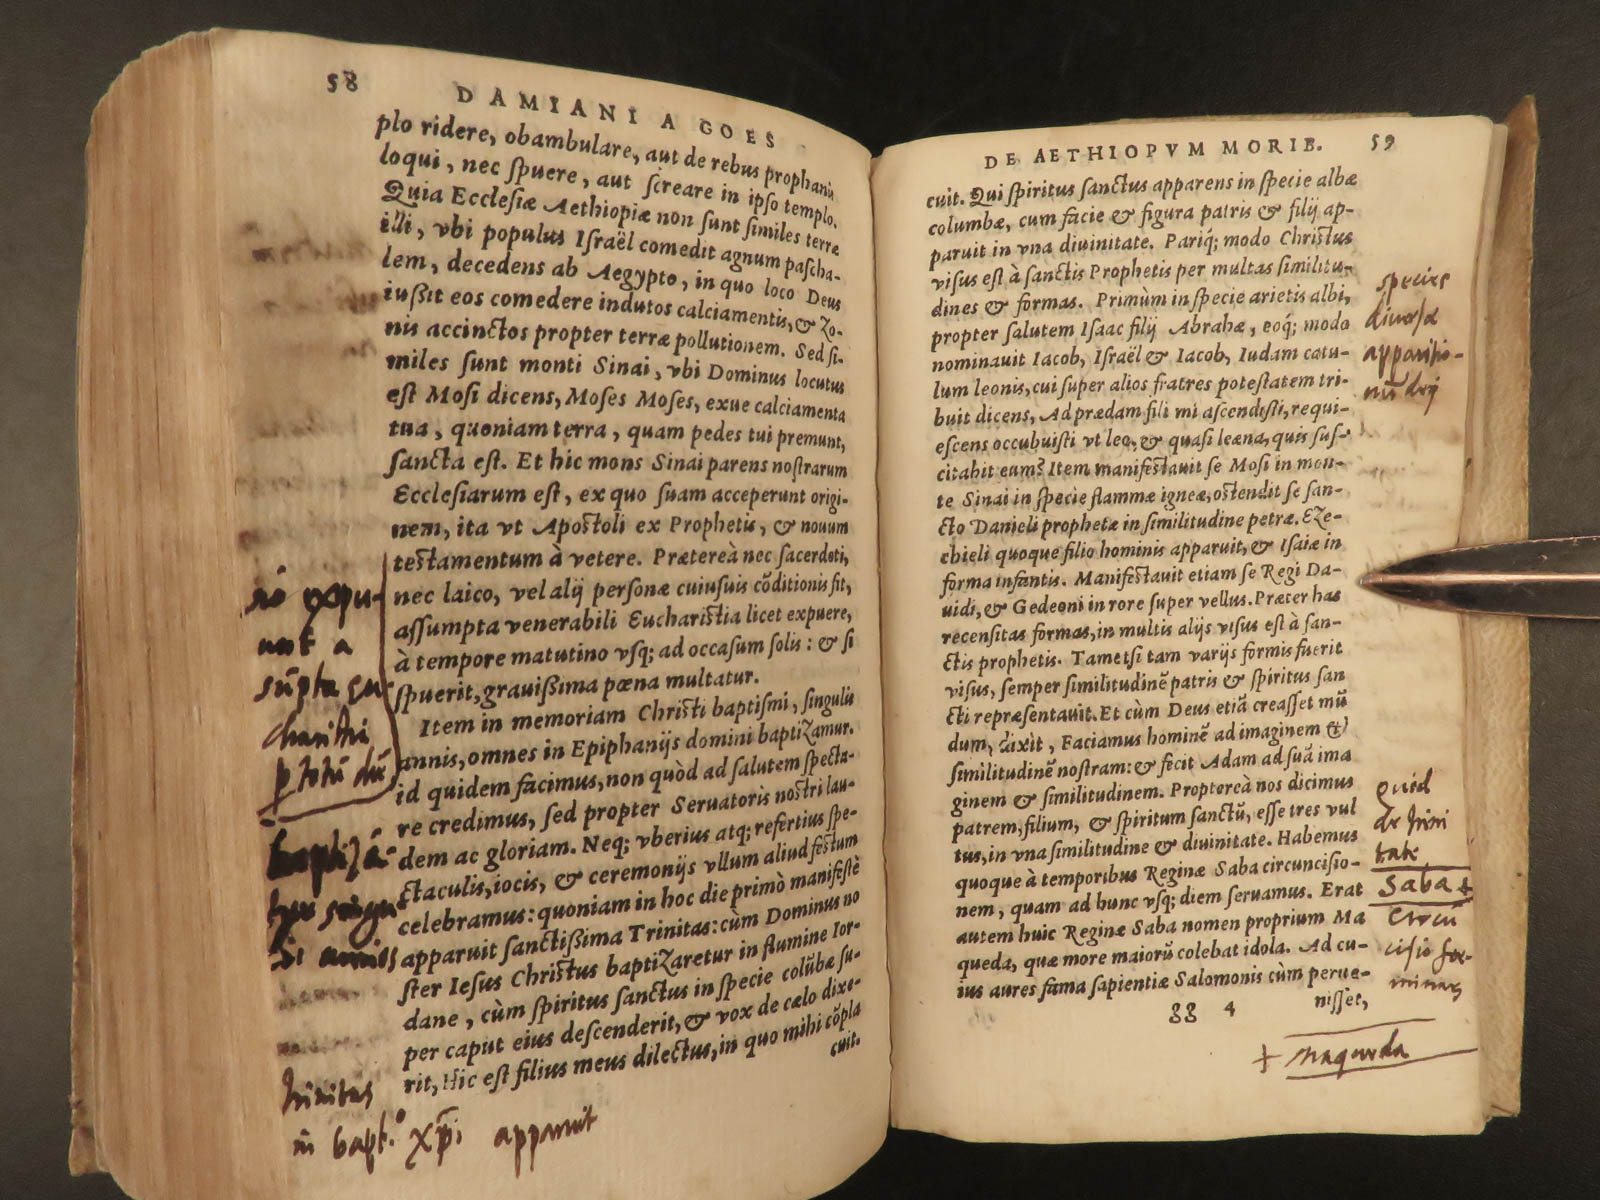 58
DAMIANI A GOES
plo ridere, obambulare, aut de rebus prophanis
loqui, nec ſpuere, aut ſcreare in ipſo templo.
Quia Eccleſiæ Aethiopiæ non ſunt ſimiles terræ
illi, vbi populus Iſraël comedit agnum paſcha-
lem, decedens ab Aegypto, in quo loco Deus
iußit eos comedere indutos calciamentis, & Zo-
nis accinctos propter terræ pollutionem. Sed ſi-
miles ſunt monti Sinai, vbi Dominus locutus
eſt Moſi dicens, Moſes Moſes, exue calciamenta
tua, quoniam terra, quam pedes tui premunt,
ſancta eſt. Et hic mons Sinai parens noſtrarum
Eccleſiarum eſt, ex quo ſuam acceperunt origi-
nem, ita vt Apoſtoli ex Prophetis, & nouum
teſtamentum à vetere. Prætereà nec ſacerdoti,
nec laico, vel alij perſonæ cuiuſuis cõditionis ſit,
aſſumpta venerabili Euchariſtia licet expuere,
à tempore matutino vſq; ad occaſum ſolis: & ſi
ſpuerit, grauißima pœna multatur.
Item in memoriam Chriſti baptiſmi, ſingulis
annis, omnes in Epiphanijs domini baptiZamur.
id quidem facimus, non quòd ad ſalutem ſpecta-
re credimus, ſed propter Seruatoris noſtri lau-
dem ac gloriam. Neq; vberius atq; refertius ſpe-
ctaculis, iocis, & ceremonijs vllum aliud feſtum
celebramus: quoniam in hoc die primò manifeſtè
apparuit ſanctißima Trinitas: cùm Dominus no
ſter Ieſus Chriſtus baptiZaretur in flumine Ior-
dane, cùm ſpiritus ſanctus in ſpecie colũbæ ſu-
per caput eius deſcenderit, & vox de cælo dixe-
rit, Hic eſt filius meus dilectus, in quo mihi cõpla
cuit.
nõ expu-
unt a
sũpta eu
charistia
p totũ diẽ
baptizã
tur singu
lis annis
trinitas
in bapt.º xpi apparuit
DE AETHIOPVM MORIB.
59
cuit. Qui ſpiritus ſanctus apparens in ſpecie albæ
columbæ, cum facie & figura patris & filij ap-
paruit in vna diuinitate. Pariq́; modo Chriſtus
viſus eſt à ſanctis Prophetis per multas ſimilitu-
dines & formas. Primùm in ſpecie arietis albi,
propter ſalutem Iſaac filij Abrahæ, eoq́; modo
nominauit Iacob, Iſraël & Iacob, Iudam catu-
lum leonis, cui ſuper alios fratres poteſtatem tri-
buit dicens, Ad prædam fili mi aſcendiſti, requi-
eſcens occubuiſti vt leo, & quaſi leæna, quis ſuſ-
citabit eum? Item manifeſtauit ſe Moſi in mon-
te Sinai in ſpecie flammæ igneæ, oſtendit ſe ſan-
cto Danieli prophetæ in ſimilitudine petræ. EZe-
chieli quoque filio hominis apparuit, & Iſaiæ in
forma infantis. Manifeſtauit etiam ſe Regi Da-
uidi, & Gedeoni in rore ſuper vellus. Præter has
recenſitas formas, in multis alijs viſus eſt à ſan-
ctis prophetis. Tametſi tam varijs formis fuerit
viſus, ſemper ſimilitudinẽ patris & ſpiritus ſan
cti repræſentauit. Et cùm Deus etiã creaſſet mũ
dum, dixit, Faciamus hominẽ ad imaginem &
ſimilitudinẽ noſtram: & fecit Adam ad ſuã ima
ginem & ſimilitudinem. Proptereà nos dicimus
patrem, filium, & ſpiritum ſanctũ, eſſe tres vul
tus, in vna ſimilitudine & diuinitate. Habemus
quoque à temporibus Reginæ Saba circunciſio-
nem, quam ad hunc vſq; diem ſeruamus. Erat
autem huic Reginæ Saba nomen proprium Ma
queda, quæ more maiorũ colebat idola. Ad cu-
ius aures fama ſapientiæ Salomonis cùm perue-
gg 4
niſſet,
species
diuersæ
apparitio-
nũ dei
quid
de trini
tate
Saba +
circũ
cisio foe-
minas
+ maqueda